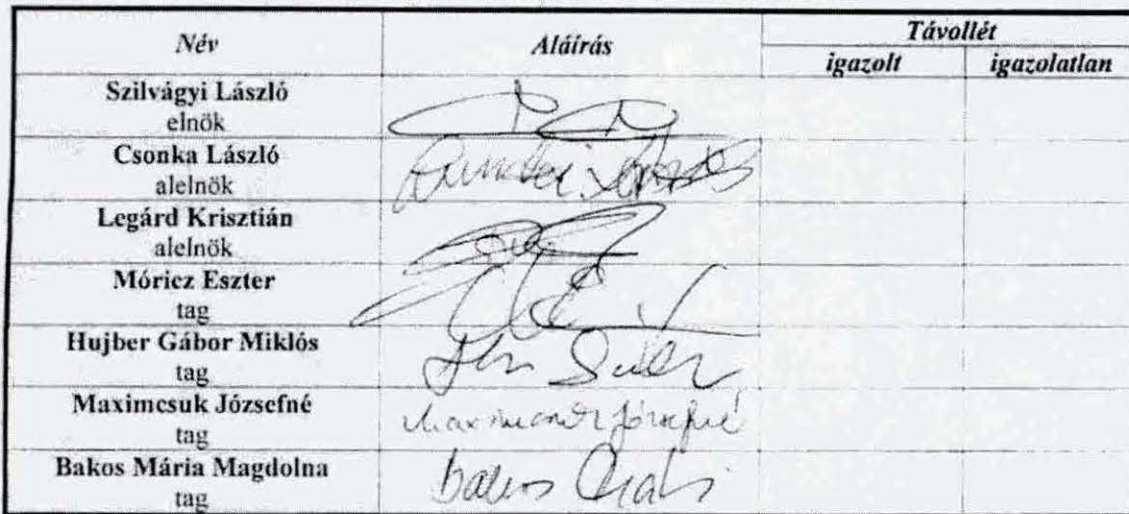 Név Aláírás Távollét
igazolt igazolatlan
Szilvágyi László
elnök
Csonka László
alelnök
Legárd Krisztián
alelnök
Móricz Eszter
tag
Hujber Gábor Miklós
tag
Maximcsuk Józsefné
tag
Maximcsuk Józsefné
Bakos Mária Magdolna
tag
Bakos